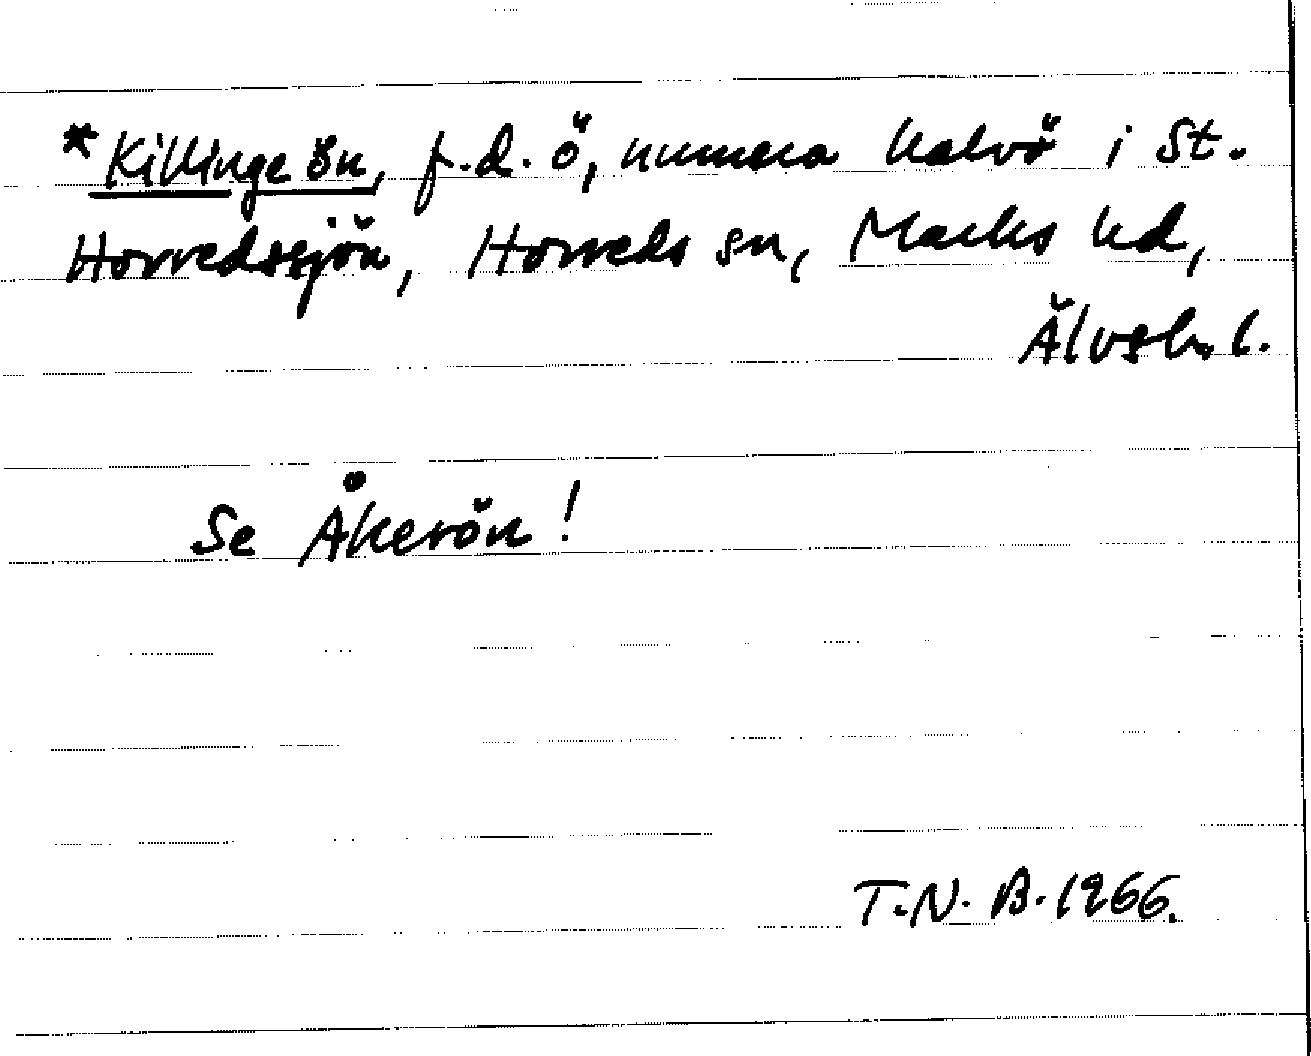 *Killingeön, f.d. ö, numera halvö i St.
Horredssjön, Horreds sn, Marks hd,
Älvsb. l.
Se Åkerön!
T.N. B. 1966.